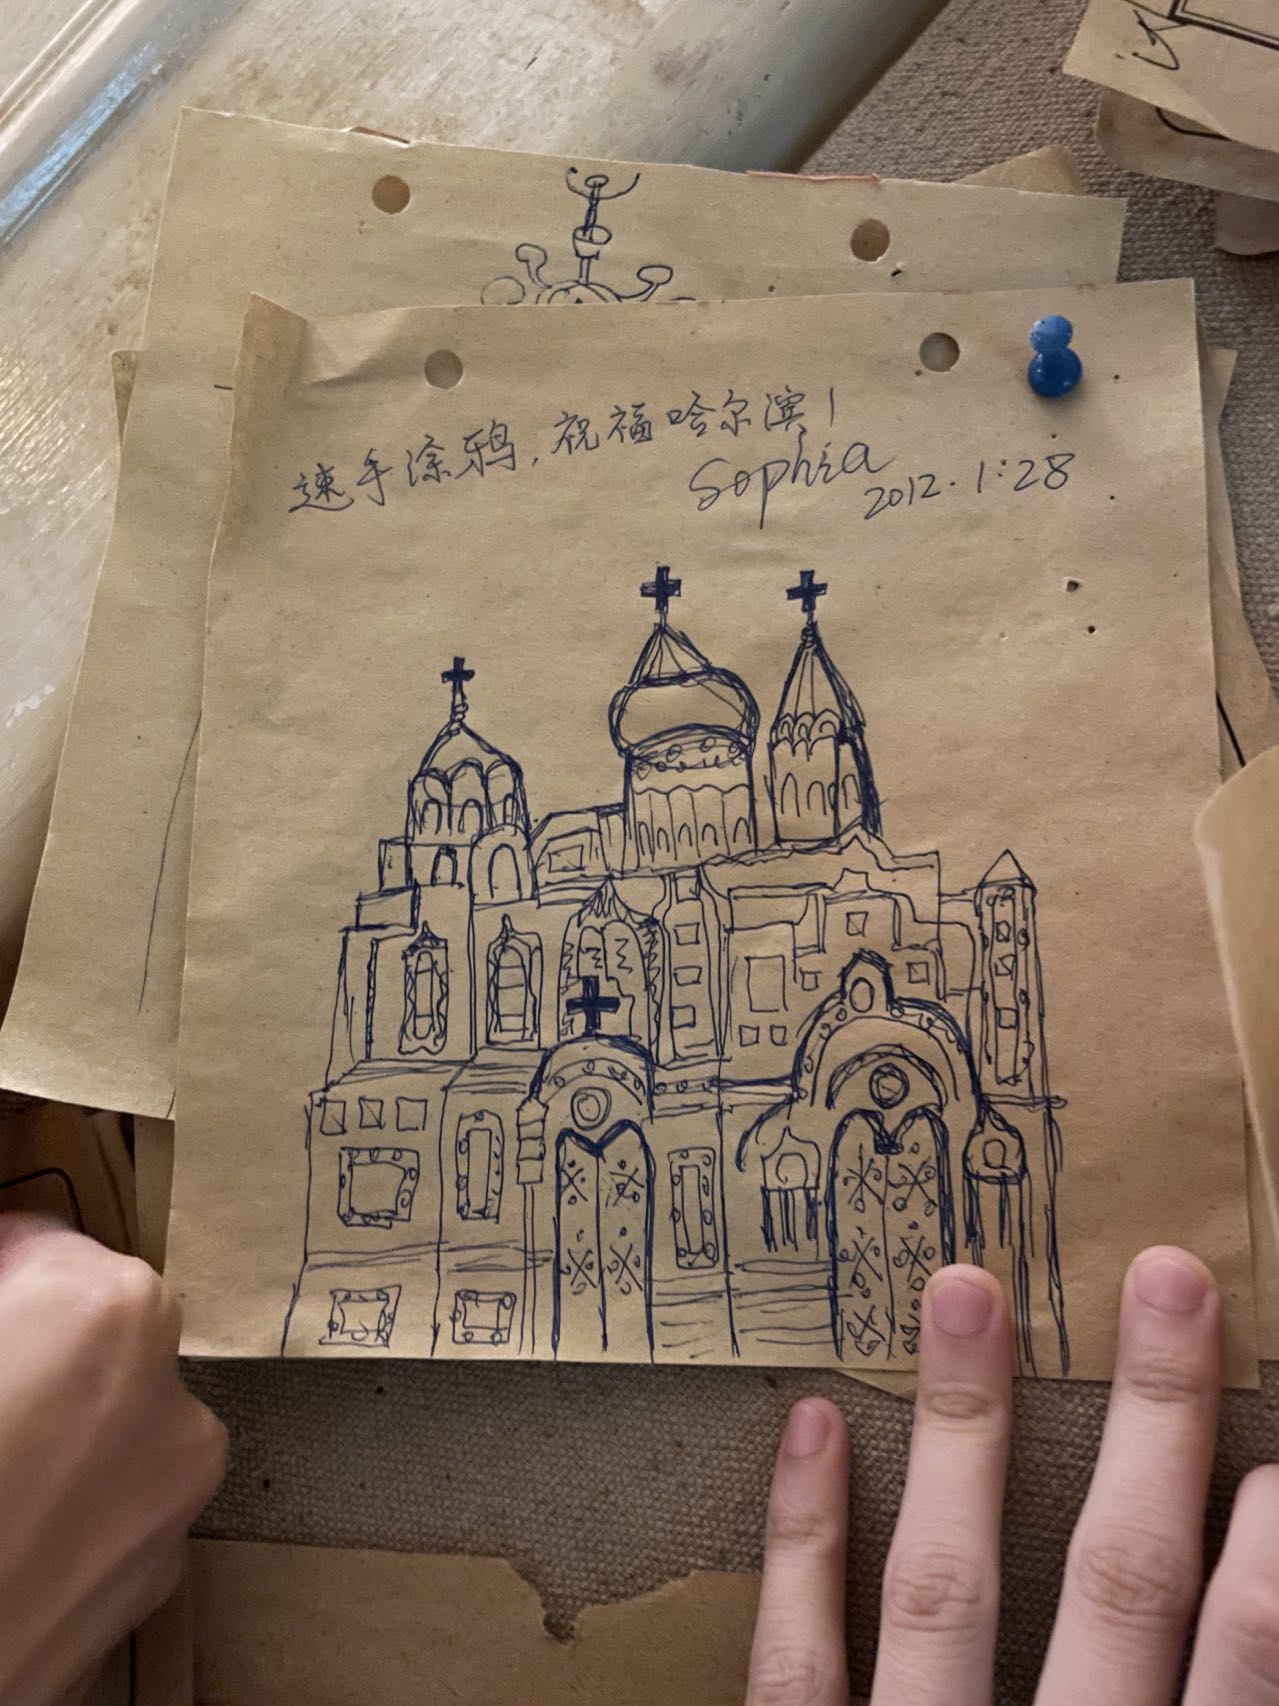 速手涂鸦,祝福哈尔滨!
Sophia
2012.1:28